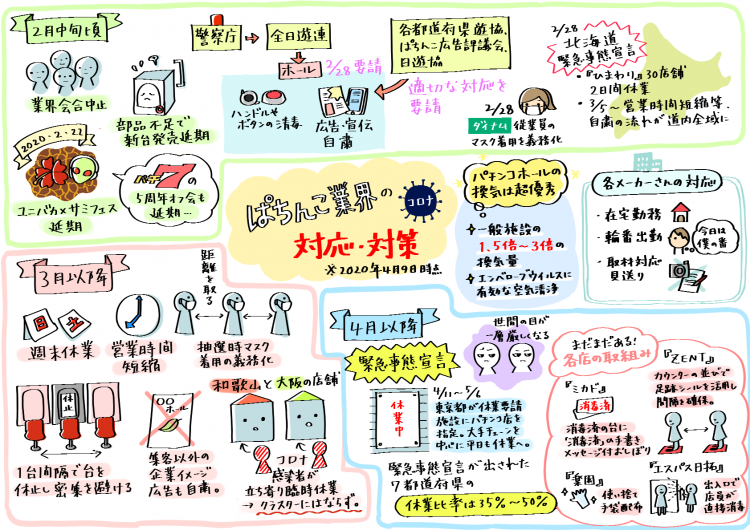 2月中旬頃
業界会合中止
部品不足で
新台発売延期
2020・2・22
ユニバカ×サミフェス
延期
パチ7の
5周年オフ会も
延期…
警察庁
全日遊連
ホール
2/28 要請
ハンドルや
ボタンの消毒
広告・宣伝
自粛
各都道府県遊協、
ぱちんこ広告協議会、
日遊協
適切な対応を
要請
2/28
ダイナム 従業員の
マスク着用を義務化
2/28
北海道
緊急事態宣言
・『ひまわり』30店舗
2日間休業
・3/5〜営業時間短縮等、
自粛の流れが道内全域に
ぱちんこ業界の
コロナ
対応・対策
※2020年4月9日時点
パチンコホールの
換気は超優秀
一般施設の
1.5倍〜3倍の
換気量
エンベロープウイルスに
有効な空気清浄
各メーカーさんの対応
・在宅勤務
・輪番出勤
今日は
僕の番
・取材対応
見送り
3月以降
日
土
週末休業
営業時間
短縮
距離を取る
抽選時マスク
着用の義務化
休止
1台間隔で台を
休止し密集を避ける
〇〇
ホール
集客以外の
企業イメージ
広告も自粛。
和歌山と大阪の店舗
コロナ
感染者が
立ち寄り臨時休業
→クラスターにはならず。
4月以降
世間の目が
一層厳しくなる
緊急事態宣言
休業中
4/11〜5/6
東京都が休業要請
施設にパチンコ店を
指定。大手チェーンを
中心に平日も休業へ。
緊急事態宣言が出された
7都道府県の
休業比率は35%〜50%
まだまだある!
各店の取組み
『ミカド』
消毒済
消毒済の台に
「消毒済」の手書き
メッセージ付おしぼり
『ZENT』
カウンターの並びで
足跡シールを活用し
間隔を確保。
『楽園』
使い捨て
手袋配布
『エスパス日拓』
出入口で
店員が
直接消毒